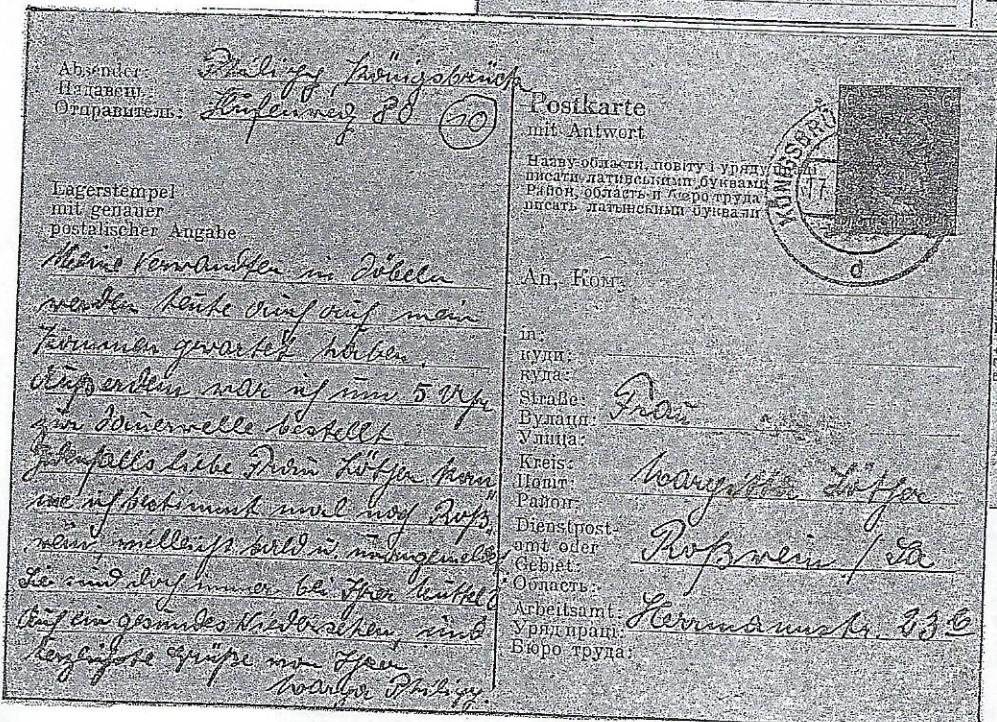 Absender: Philipp, Königsbrück
Надавец:
Отправитель: Hufenweg 80 (10)
Lagerstempel
mit genauer
postalischer Angabe
Meine Verwandten in Döbeln
werden heute auch auf mein
Kommen gewartet haben.
Außerdem war ich um 5 Uhr
zur Dauerwelle bestellt
Jedenfalls liebe Frau Löther kom
me ich bestimmt mal nach Roß
wein, vielleicht bald u. unangemeldet
Sie sind doch immer bei Ihrer
Auf ein gesundes Wiedersehen, und
herzlichste Grüße von Ihrer
Marga Philipp.
Postkarte
mit Antwort
Назву области, повіту і уряду
писати латинськими буквами
Район, область и бюро труда
писать латынскими буквами
KÖNIGSBRÜ
17.
d
An, Кому:
in:
куди:
куда:
Straße: Frau
Вулиця:
Улица:
Kreis: Margitta Löther
Повіт:
Район:
Dienstpost-
amt oder Roßwein / Sa
Gebiet:
Область:
Arbeitsamt: Herrmannstr. 23
Уряд праці:
Бюро труда: